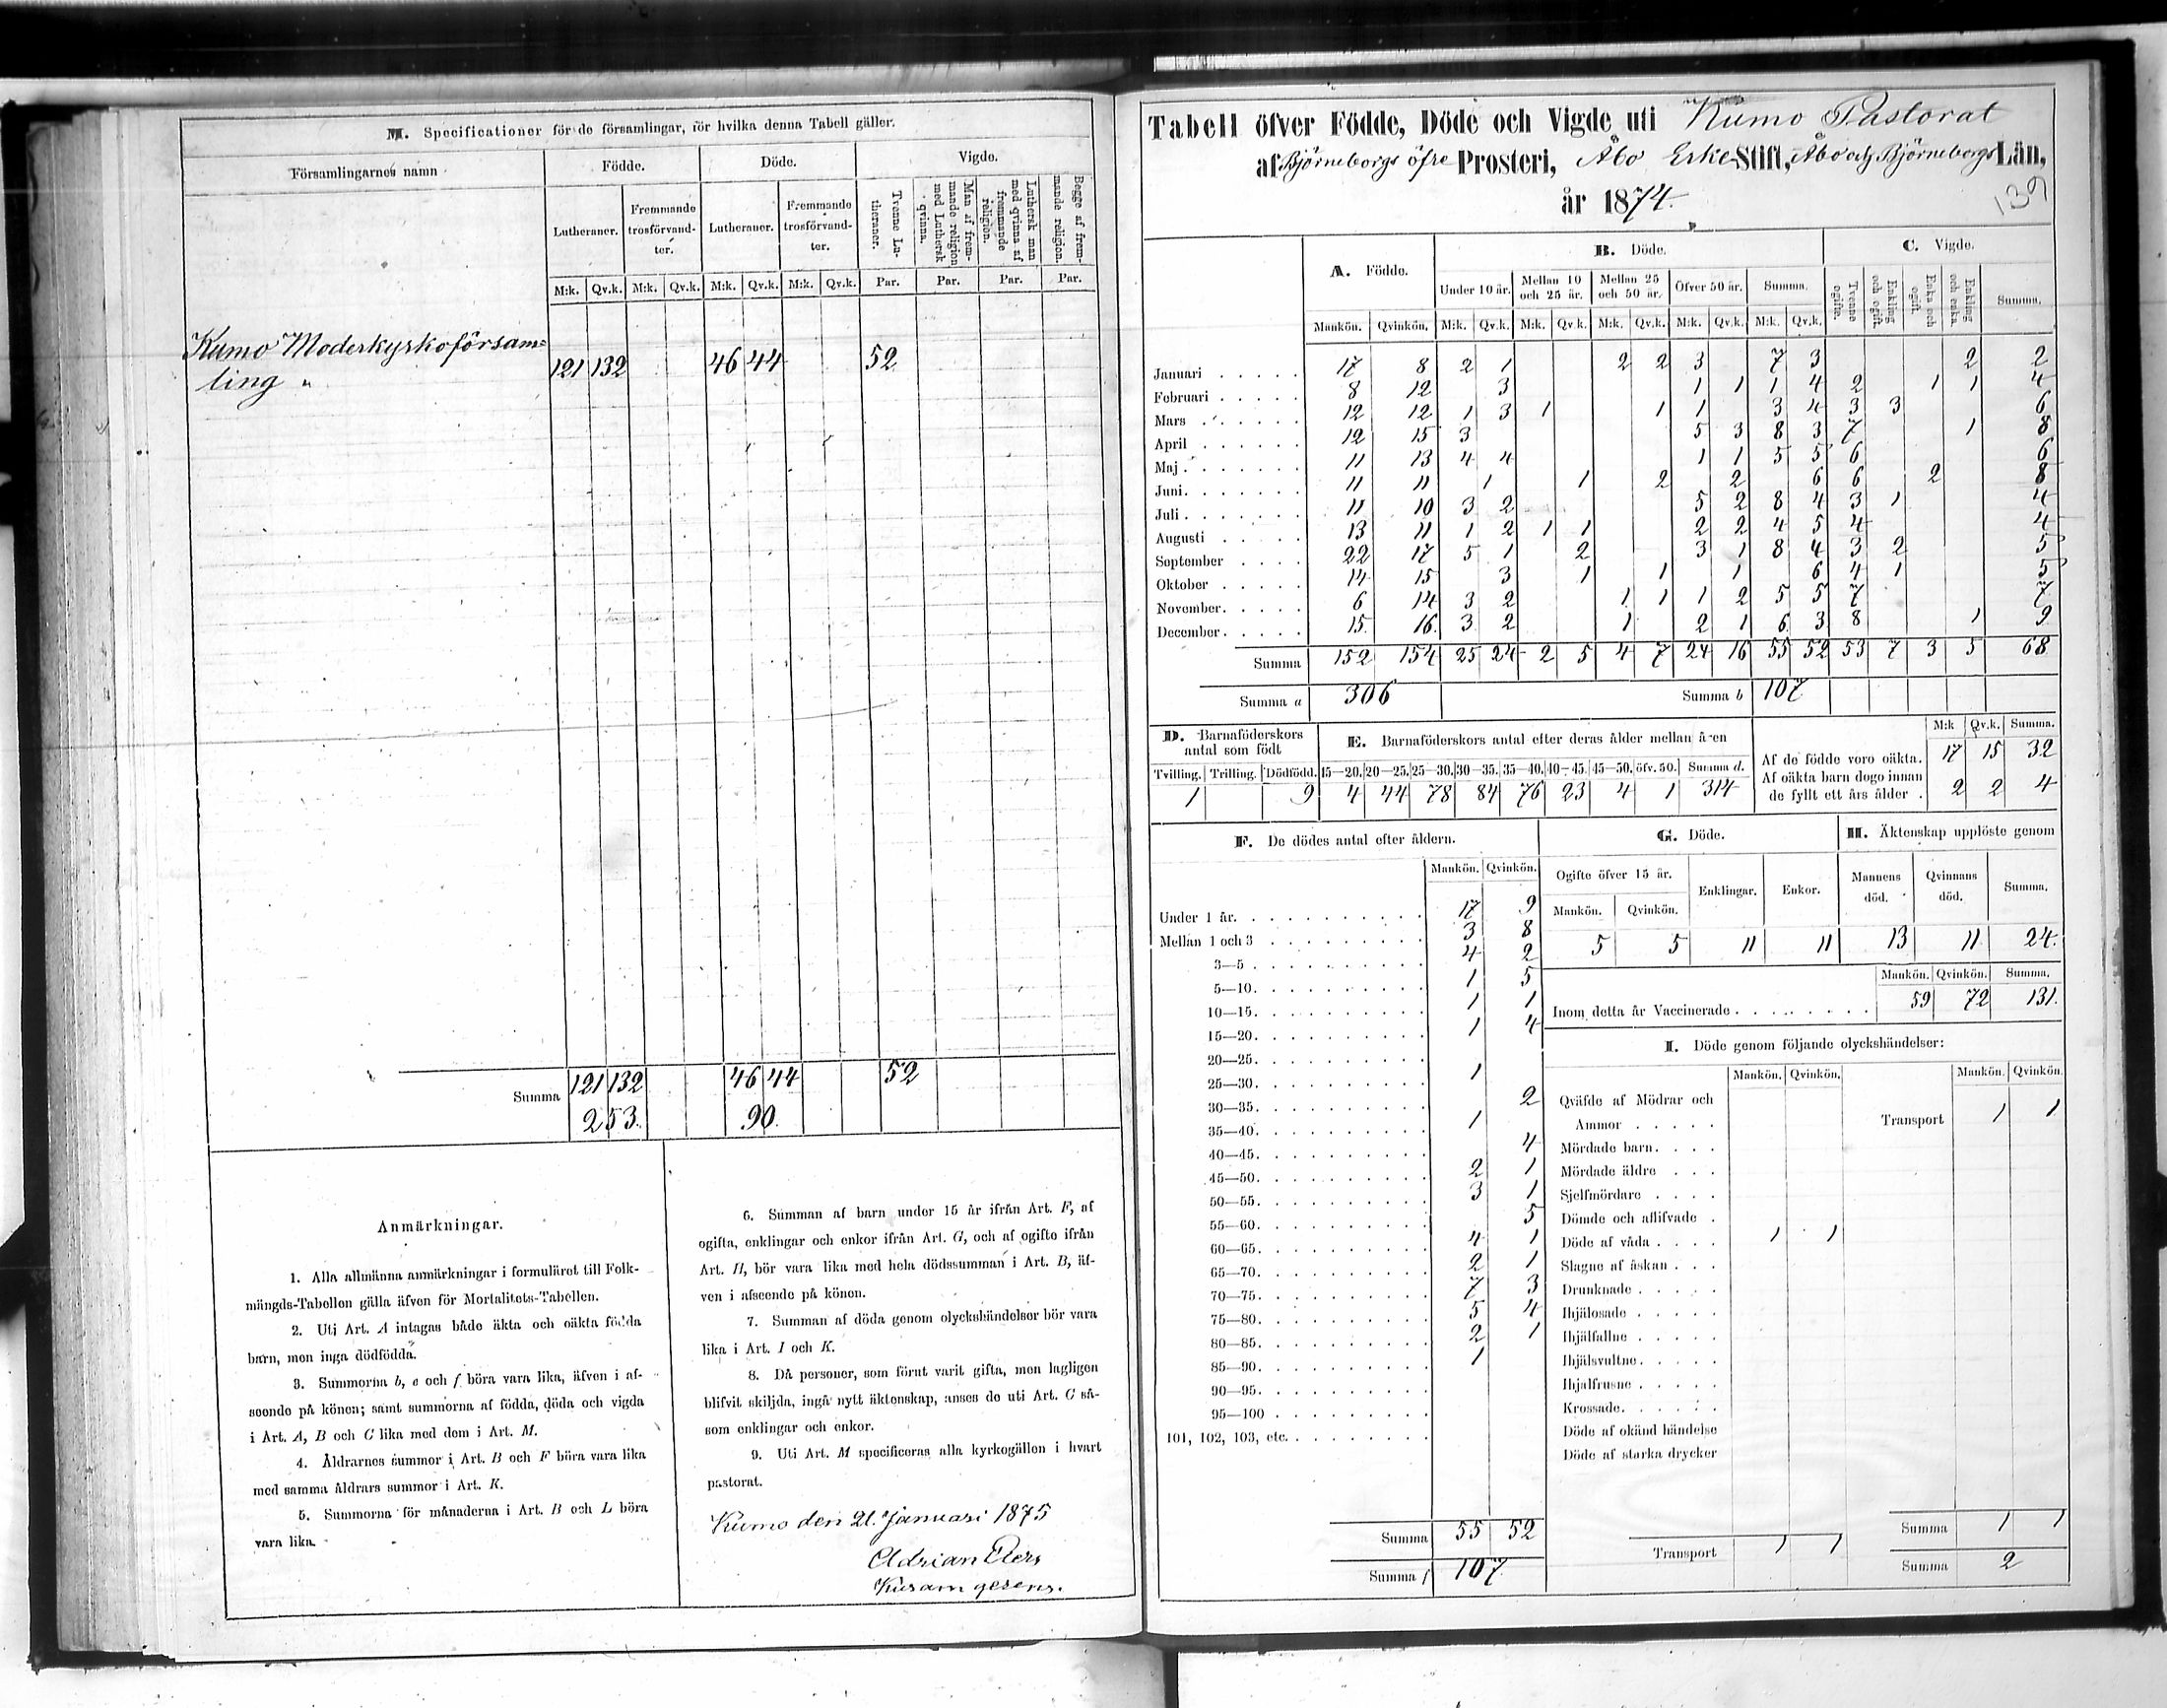 M. Specificationer för de församlingar, för hvilka denna Tabell gäller.
Församlingarnes namn Födde. Döde. Vigde.
Lutheraner. Fremmande trosförvandter. Lutheraner. Fremmande trosförvandter. Tvenne Lutheraner. Man af fremmande religion med Luthersk qvinna. Luthersk man med qvinna af fremmande religion. Begge af fremmande religion.
M:k. Qv.k. M:k. Qv.k. M:k. Qv.k. M:k. Qv.k. Par. Par. Par. Par.
Kumo Moderkyrkoförsam=
ling 121 132 46 44 52
Summa 121 132 46 44 52
253. 90.
Anmärkningar.
1. Alla allmänna anmärkningar i formuläret till Folk-
mängds-Tabellen gälla äfven för Mortalitets-Tabellen.
2. Uti Art. A intagas både äkta och oäkta födda
barn, men inga dödfödda.
3. Summorna b, e och f böra vara lika, äfven i af-
seende på könen; samt summorna af födda, döda och vigda
i Art. A, B och C lika med dem i Art. M.
4. Åldrarnes summor i Art. B och F böra vara lika
med samma åldrars summor i Art. K.
5. Summorna för månaderna i Art. B och L böra
vara lika.
6. Summan af barn under 15 år ifrån Art. F, af
ogifta, enklingar och enkor ifrån Art. G, och af ogifte ifrån
Art. H, bör vara lika med hela dödssumman i Art. B, äf-
ven i afseende på könen.
7. Summan af döda genom olyckshändelser bör vara
lika i Art. I och K.
8. Då personer, som förut varit gifta, men lagligen
blifvit skiljda, ingå nytt äktenskap, anses de uti Art. C så-
som enklingar och enkor.
9. Uti Art. M specificeras alla kyrkogällen i hvart
pastorat.
Kumo den 21. Januari 1875
Adrian
Tabell öfver Födde, Döde och Vigde uti Kumo Pastorat
af Björneborgs öfre Prosteri, Åbo Erke-Stift, Åbo och Björneborgs Län,
år 1874.
139
A. Födde. B. Döde. C. Vigde.
Under 10 år. Mellan 10 och 25 år. Mellan 25 och 50 år. Öfver 50 år. Summa. Tvenne ogifte. Enkling och ogift. Enka och ogift. Enkling och enka. Summa.
Mankön. Qvinkön. M:k. Qv.k. M:k. Qv.k. M:k. Qv.k. M:k. Qv.k. M:k. Qv.k.
Januari 17 8 2 1 2 2 3 7 3 2 2
Februari 8 12 3 1 1 1 4 2 1 1 4
Mars 12 12 1 3 1 1 1 3 4 3 3 6
April 12 15 3 5 3 8 3 7 1 8
Maj 11 13 4 4 1 1 5 5 6 6
Juni 11 11 1 1 2 2 6 6 2 8
Juli 11 10 3 2 5 2 8 4 3 1 4
Augusti 13 11 1 2 1 1 2 2 4 5 4 4
September 22 17 5 1 2 3 1 8 4 3 2 5
Oktober 14 15 3 1 1 1 6 4 1 5
November 6 14 3 2 1 1 1 2 5 5 7 7
December 15 16 3 2 1 2 1 6 3 8 1 9
Summa 152 154 25 24 2 5 4 7 24 16 55 52 53 7 3 5 68
Summa a 306 Summa b 107
D. Barnaföderskors antal som födt
Tvilling. Trilling. Dödfödd.
1 9
E. Barnaföderskors antal efter deras ålder mellan åren
15—20. 20—25. 25—30. 30—35. 35—40. 40—45. 45—50. öfv. 50. Summa d.
4 44 78 84 76 23 4 1 314
M:k Qv.k. Summa.
Af de födde voro oäkta. 17 15 32
Af oäkta barn dogo innan
de fyllt ett års ålder 2 2 4
F. De dödes antal efter åldern.
Mankön. Qvinkön.
Under 1 år. 17 9
Mellan 1 och 3 3 8
3—5 4 2
5—10. 1 5
10—15. 1 1
15—20. 1 4
20—25.
25—30. 1
30—35. 2
35—40. 1
40—45. 4
45—50. 2 1
50—55. 3 1
55—60. 5
60—65. 4 1
65—70. 2 1
70—75. 7 3
75—80. 5 4
80—85. 2 1
85—90. 1
90—95.
95—100
101, 102, 103, etc.
Summa 55 52
Summa f 107
G. Döde.
Ogifte öfver 15 år. Enklingar. Enkor.
Mankön. Qvinkön.
5 5 11 11
H. Äktenskap upplöste genom
Mannens död. Qvinnans död. Summa.
13 11 24.
Mankön. Qvinkön. Summa.
Inom detta år Vaccinerade 59 72 131.
I. Döde genom följande olyckshändelser:
Mankön. Qvinkön. Mankön. Qvinkön.
Qväfde af Mödrar och
Ammor
Mördade barn.
Mördade äldre
Sjelfmördare
Dömde och aflifvade
Döde af våda 1 1
Slagne af åskan
Drunknade
Ihjälosade
Ihjälfallne
Ihjälsvultne
Ihjälfrusne
Krossade.
Döde af okänd händelse
Döde af starka drycker
Transport 1 1
Transport 1 1
Summa 1 1
Summa 2